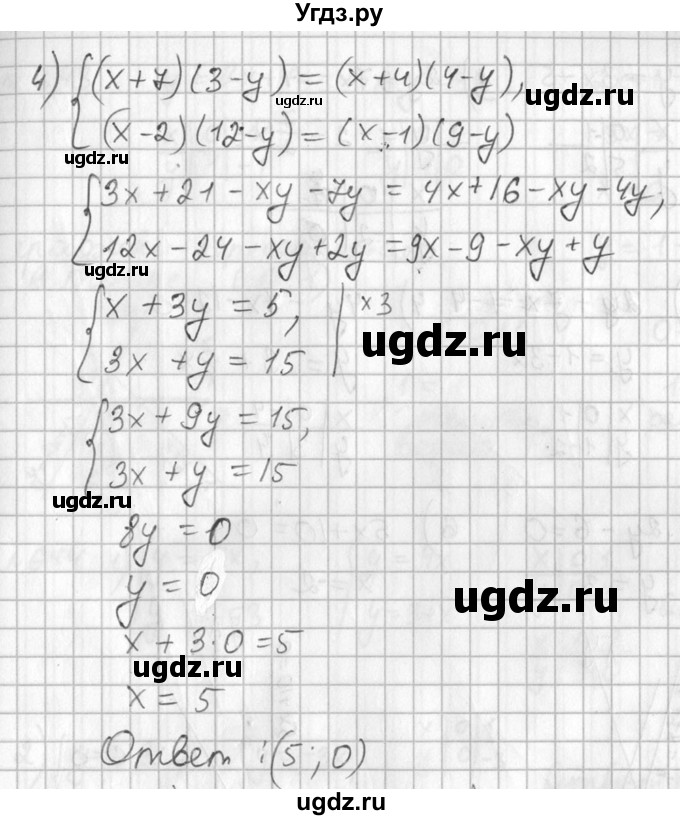 Угдз.ру
4) {(x+7)(3-y) = (x+4)(4-y),
ugdz.ru
ugdz.ru
(x-2)(12-y) = (x-1)(9-y)
ugdz.ru
{3x+21-xy-7y = 4x+16-xy-4y,
12x-24-xy+2y = 9x-9-xy+y
ugdz.ru
{x+3y=5, | x3
ugdz.ru
3x+y=15
{3x+9y=15,
3x+y=15
ugdz.ru
8y=0
y=0
ugdz.ru
x+3·0=5
ugdz.ru
x=5
Ответ: (5; 0)
ugdz.ru